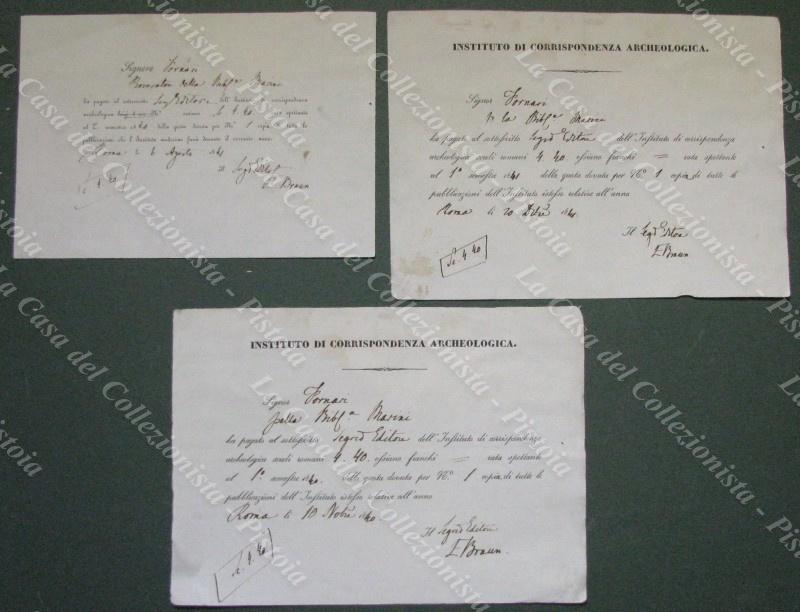 Signore Fornari
Procuratore della Bibl.ª Marini
ha pagato al sottoscritto Seg.º Editore dell'Instituto di corrispondenza
archeologica scudi Sc. 4. 40 rata spettante
al 2. semestre 1840 della quota dovuta per N.º 1 copia di tutte le
pubblicazioni che l'Instituto medesimo farà durante il corrente anno.
Roma li 6 Agosto 1841
Il Seg.º Edit.e
E. Braun
Sc. 4. 40
INSTITUTO DI CORRISPONDENZA ARCHEOLOGICA.
Signor Fornari
p la Bibl.ª Marini
ha pagato al sottoscritto Segrio Editore dell'Instituto di corrispondenza
archeologica scudi romani 4 40 ossiano franchi = rata spettante
al 1º semestre 1841 della quota dovuta per N.º 1 copia di tutte le
pubblicazioni dell'Instituto istesso relative all'anno
Roma li 20 Dbre 1841.
Il Segrio Editore
E Braun
Sc. 4. 40
INSTITUTO DI CORRISPONDENZA ARCHEOLOGICA.
Signor Fornari
p della Bibl.ª Marini
ha pagato al sottoscritto Segrio Editore dell'Instituto di corrispondenza
archeologica scudi romani 4. 40. ossiano franchi = rata spettante
al 1º. semestre 1840. della quota dovuta per N.º 1 copia di tutte le
pubblicazioni dell'Instituto istesso relative all'anno
Roma li 10 Nobre 1840
Il Segrio Editore
E Braun.
Sc. 4. 40
La Casa del Collezionista - Pistoia